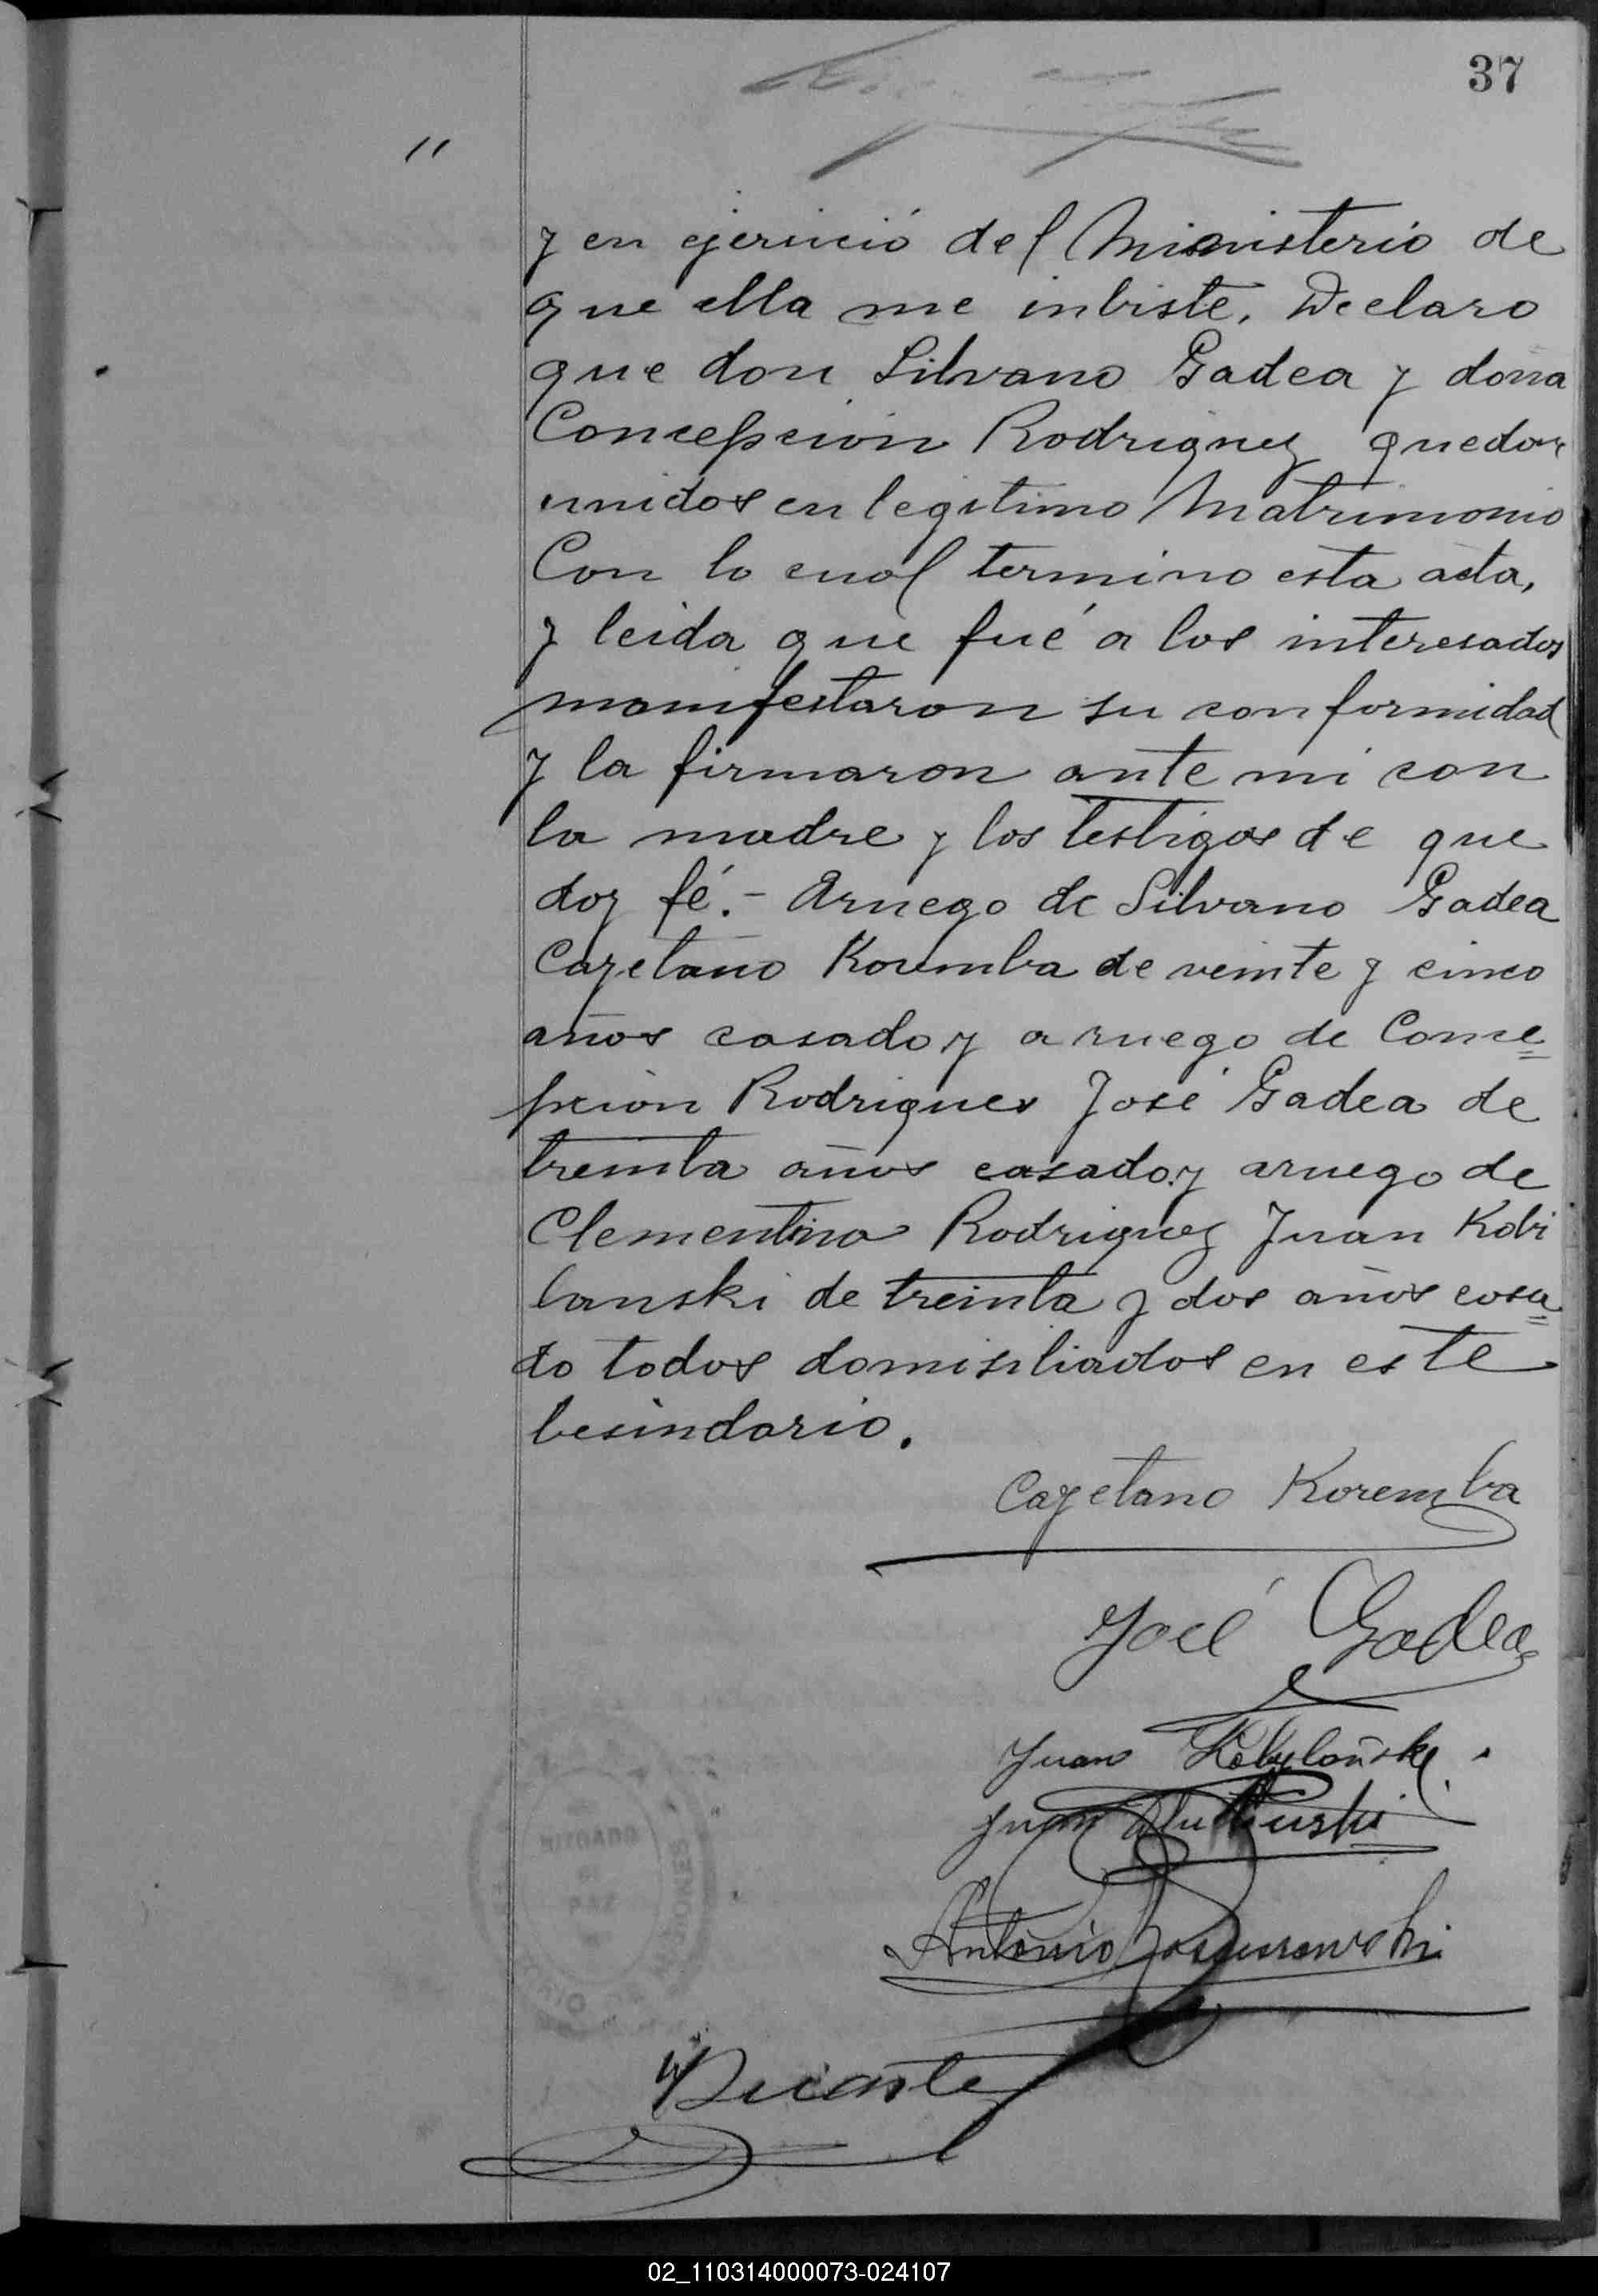 37
"
y en ejerició del Ministerio de
que ella me inbiste. Declaro
que don Silvano Gadea y doña
Concepción Rodriguez quedan
unidos en legitimo Matrimonio
Con lo cual termino esta acta,
y leida que fué a los interesados
manifestaron su conformidad
y la firmaron ante mi con
la madre y los testigos de que
doy fé.- Aruego de Silvano Gadea
Cayetano Koremba de veinte y cinco
años casado y a ruego de Conce=
pcion Rodrigues José Gadea de
treinta años casado y aruego de
Clementina Rodriguez Juan Kobi
lanski de treinta y dos años casa=
do todos domisiliados en este
besindario.
Cayetano Koremba
José Gadea
Juan Kobylański
Juan
Antonio
JUZGADO
DE
PAZ
02_110314000073-024107